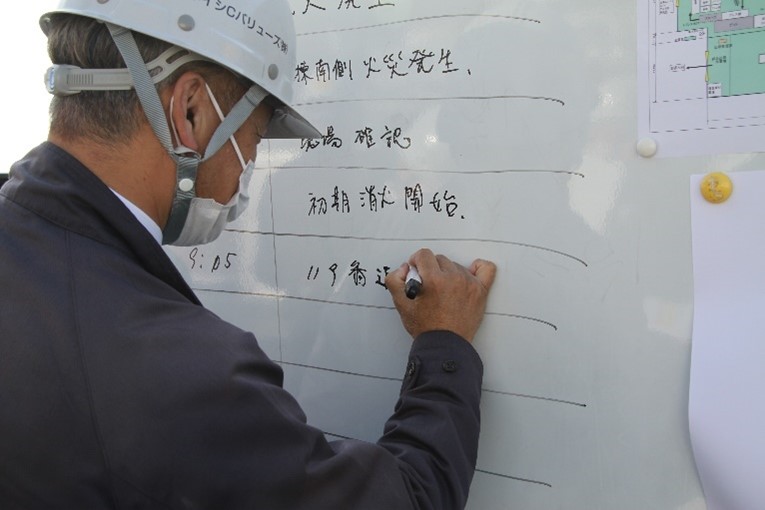 イシCバリューズ
火災発生
棟南側 火災発生.
現場 確認
初期消火開始.
9:05 119番通